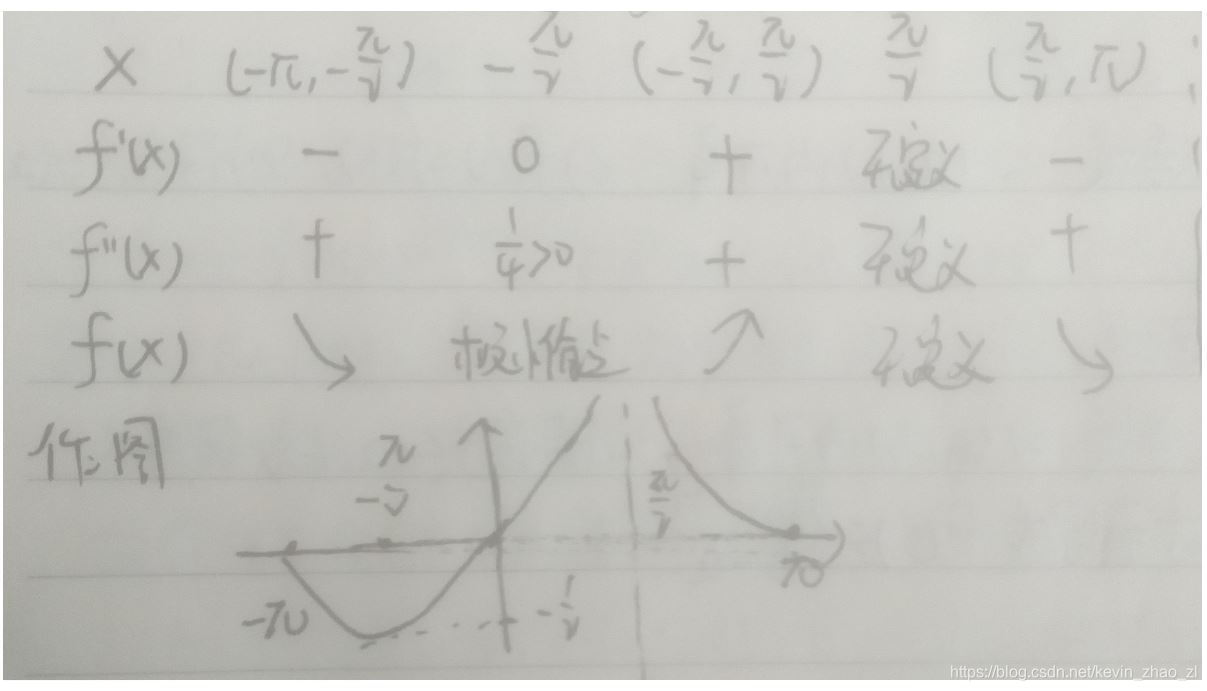 x (-π, -π/2) -π/2 (-π/2, π/2) π/2 (π/2, π)
f'(x) - 0 + 无定义 -
f''(x) + 1/4>0 + 无定义 +
f(x) ↘ 极小值点 ↗ 无定义 ↘
作图
π
-2
π/2
-π
-1/2
π
https://blog.csdn.net/kevin_zhao_zl